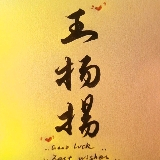 王杨扬
Good Luck
Best wishes